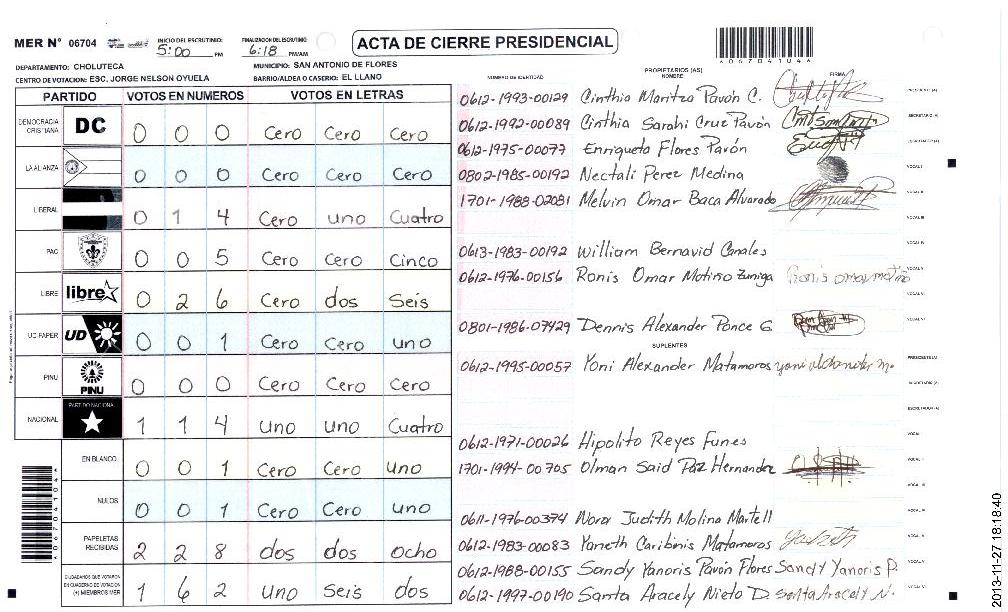 MER Nº 06704 INICIO DEL ESCRUTINIO: 5:00 PM FINALIZACION DEL ESCRUTINIO: 6:18 PM/AM ACTA DE CIERRE PRESIDENCIAL
* 0 6 7 0 4 1 0 4 *
DEPARTAMENTO: CHOLUTECA MUNICIPIO: SAN ANTONIO DE FLORES
CENTRO DE VOTACION: ESC. JORGE NELSON OYUELA BARRIO/ALDEA O CASERIO: EL LLANO
NÚMERO DE IDENTIDAD PROPIETARIOS (AS) NOMBRE FIRMA
PARTIDO VOTOS EN NUMEROS VOTOS EN LETRAS
DEMOCRACIA CRISTIANA DC 0 0 0 Cero Cero Cero
LA ALIANZA 0 0 0 Cero Cero Cero
LIBERAL 0 1 4 Cero uno Cuatro
PAC 0 0 5 Cero Cero Cinco
LIBRE libre 0 2 6 Cero dos Seis
UD-FAPER UD 0 0 1 Cero Cero uno
PINU PINU 0 0 0 Cero Cero Cero
NACIONAL PARTIDO NACIONAL 1 1 4 Uno Uno Cuatro
EN BLANCO 0 0 1 Cero Cero uno
NULOS 0 0 1 Cero Cero uno
PAPELETAS RECIBIDAS 2 2 8 dos dos ocho
CIUDADANOS QUE VOTARON EN CUADERNO DE VOTACION (+) MIEMBROS MER 1 6 2 Uno Seis dos
0612-1993-00129 Cinthia Maritza Pavón C. PRESIDENTE (A)
0612-1992-00089 Cinthia Sarahi Cruz Pavón SECRETARIO (A)
0612-1975-00077 Enriqueta Flores Pavón ESCRUTADOR (A)
0802-1985-00192 Nectali Perez Medina VOCAL I
1701-1988-02081 Melvin Omar Baca Alvarado VOCAL II
VOCAL III
0613-1983-00192 William Bernavid Canales VOCAL IV
0612-1976-00156 Ronis Omar Motiño Zuniga Ronis omar motiño VOCAL V
VOCAL VI
0801-1986-07429 Dennis Alexander Ponce G VOCAL VII
SUPLENTES
0612-1995-00057 Yoni Alexander Matamoros yoni alexander m. PRESIDENTE (A)
SECRETARIO (A)
ESCRUTADOR (A)
0612-1971-00026 Hipolito Reyes Funes VOCAL I
1701-1994-00705 Olman Said Paz Hernandez VOCAL II
VOCAL III
0611-1976-00374 Nora Judith Molina Martell VOCAL IV
0612-1983-00083 Yaneth Caribinis Matamoros VOCAL V
0612-1988-00155 Sandy Yanoris Pavón Flores Sandy Yanoris P. VOCAL VI
0612-1997-00190 Santa Aracely Nieto D Santa Aracely N.
* 0 6 7 0 4 1 0 4 *
2013-11-27 18:18:40